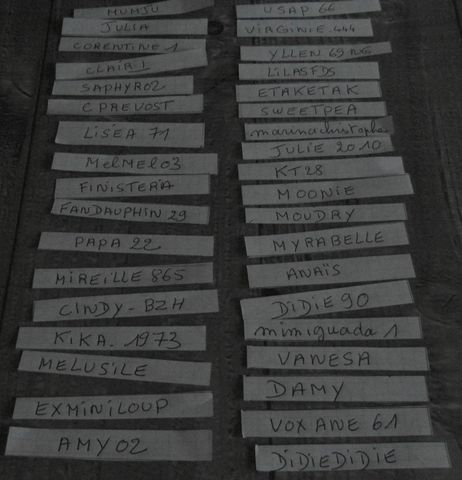 MUMJU
JULIA
CORENTINE 1
CLAIR.I
SAPHYR02
C PREVOST
LISEA 71
MELMEL03
FINISTERIA
FANDAUPHIN 29
PAPA 22
MIREILLE 865
CINDY-BZH
KIKA. 1973
MELUSILE
EXMINILOUP
AMY02
USAP 66
VIRGINIE.444
LILASFDS
ETAKETAK
SWEETPEA
marinachristophe
JULIE 2010
KT28
MOONIE
MOUDRY
MYRABELLE
ANAÏS
DIDIE 90
mimiguada 1
VANESA
DAMY
VOXANE 61
DIDIEDIDIE